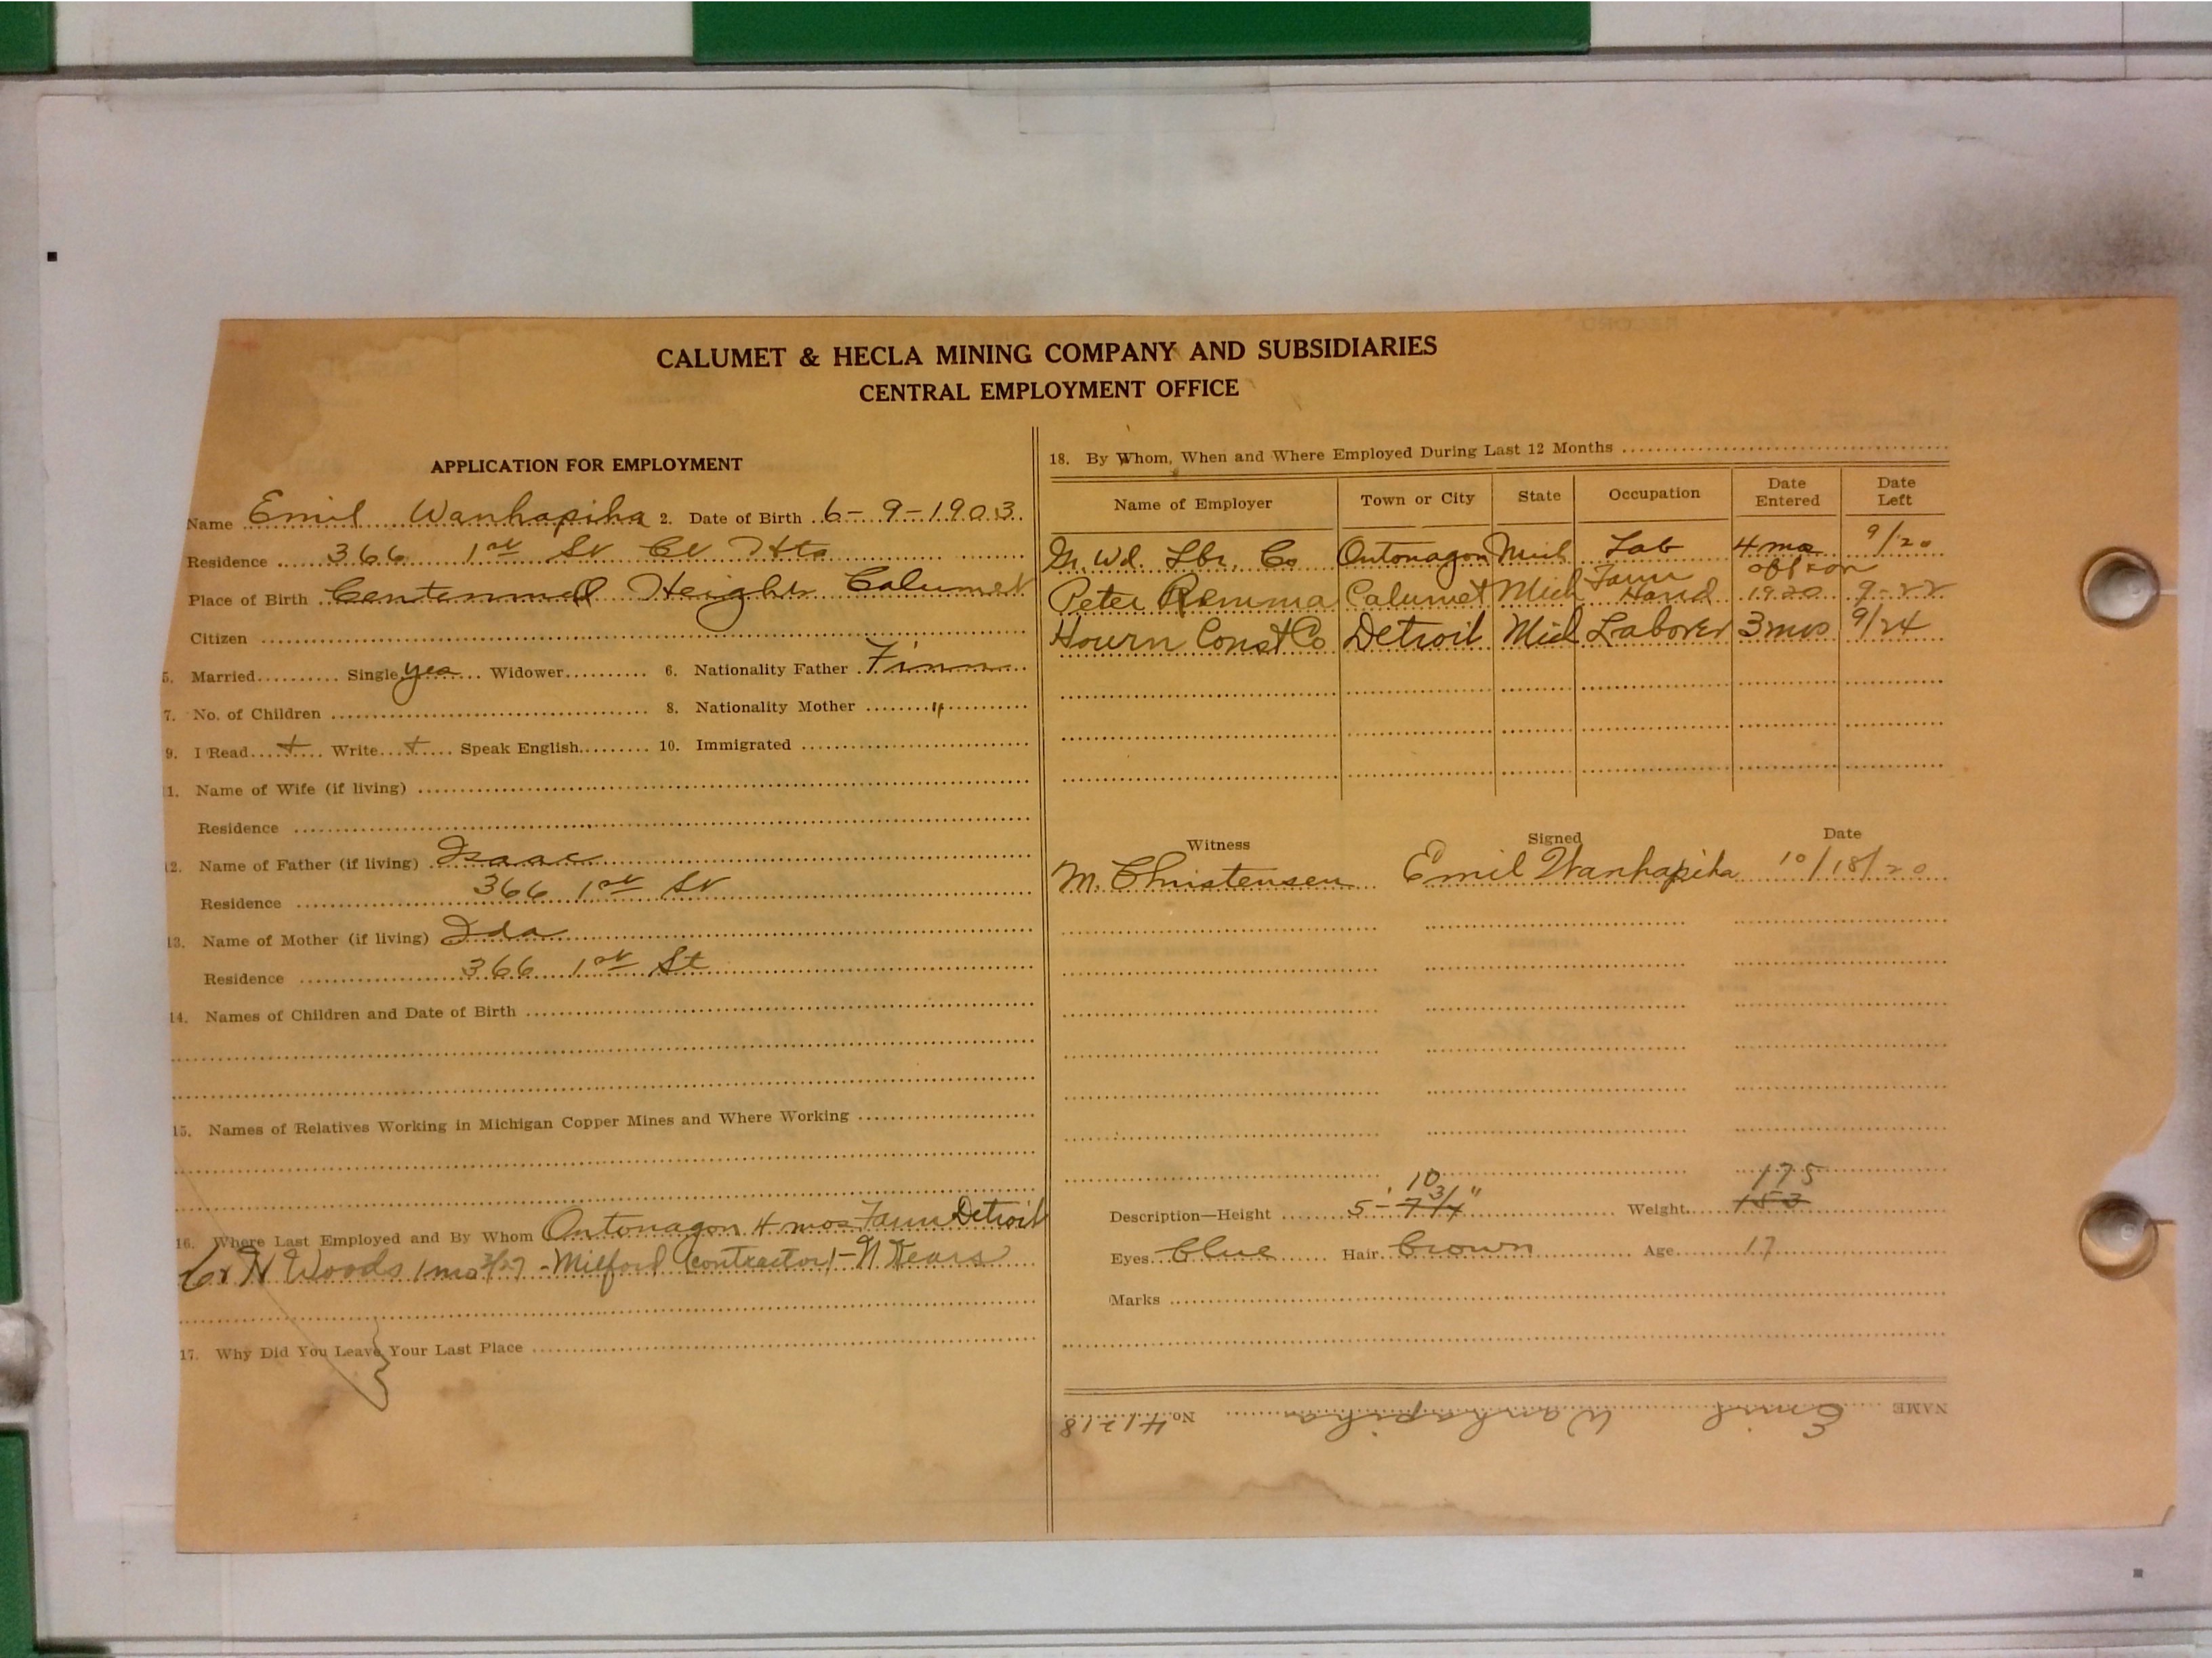 CALUMET & HECLA MINING COMPANY AND SUBSIDIARIES
CENTRAL EMPLOYMENT OFFICE
APPLICATION FOR EMPLOYMENT
Name Emil Wanhapiha 2. Date of Birth 6-9-1903
Residence 366 1st St Cl Hts
Place of Birth Centennial Heights Calumet
Citizen
5. Married Single yes Widower 6. Nationality Father Finn
7. No. of Children 8. Nationality Mother "
9. I Read + Write + Speak English 10. Immigrated
11. Name of Wife (if living)
Residence
12. Name of Father (if living) Isaac
Residence 366 1st St
13. Name of Mother (if living) Ida
Residence 366 1st St
14. Names of Children and Date of Birth
15. Names of Relatives Working in Michigan Copper Mines and Where Working
16. Where Last Employed and By Whom Ontonagon 4 mos Farm Detroit
Woods 1 mo 3/27 - Milford (contractor) -
17. Why Did You Leave Your Last Place
18. By Whom, When and Where Employed During Last 12 Months
Name of Employer Town or City State Occupation Date Entered Date Left
Lbr. Co Ontonagon Mich Lab 4 mo 9/20
off & on
Peter Remma Calumet Mich Farm Hand 1920 9-22
Hourn Const Co Detroit Mich Laborer 3 mos 9/24
Witness Signed Date
M. Christensen Emil Wanhapiha 10/18/20
10 175
Description—Height 5-' 7 3/4" Weight 153
Eyes Blue Hair Brown Age 17
Marks
NAME Emil Wanhapiha No. 41218